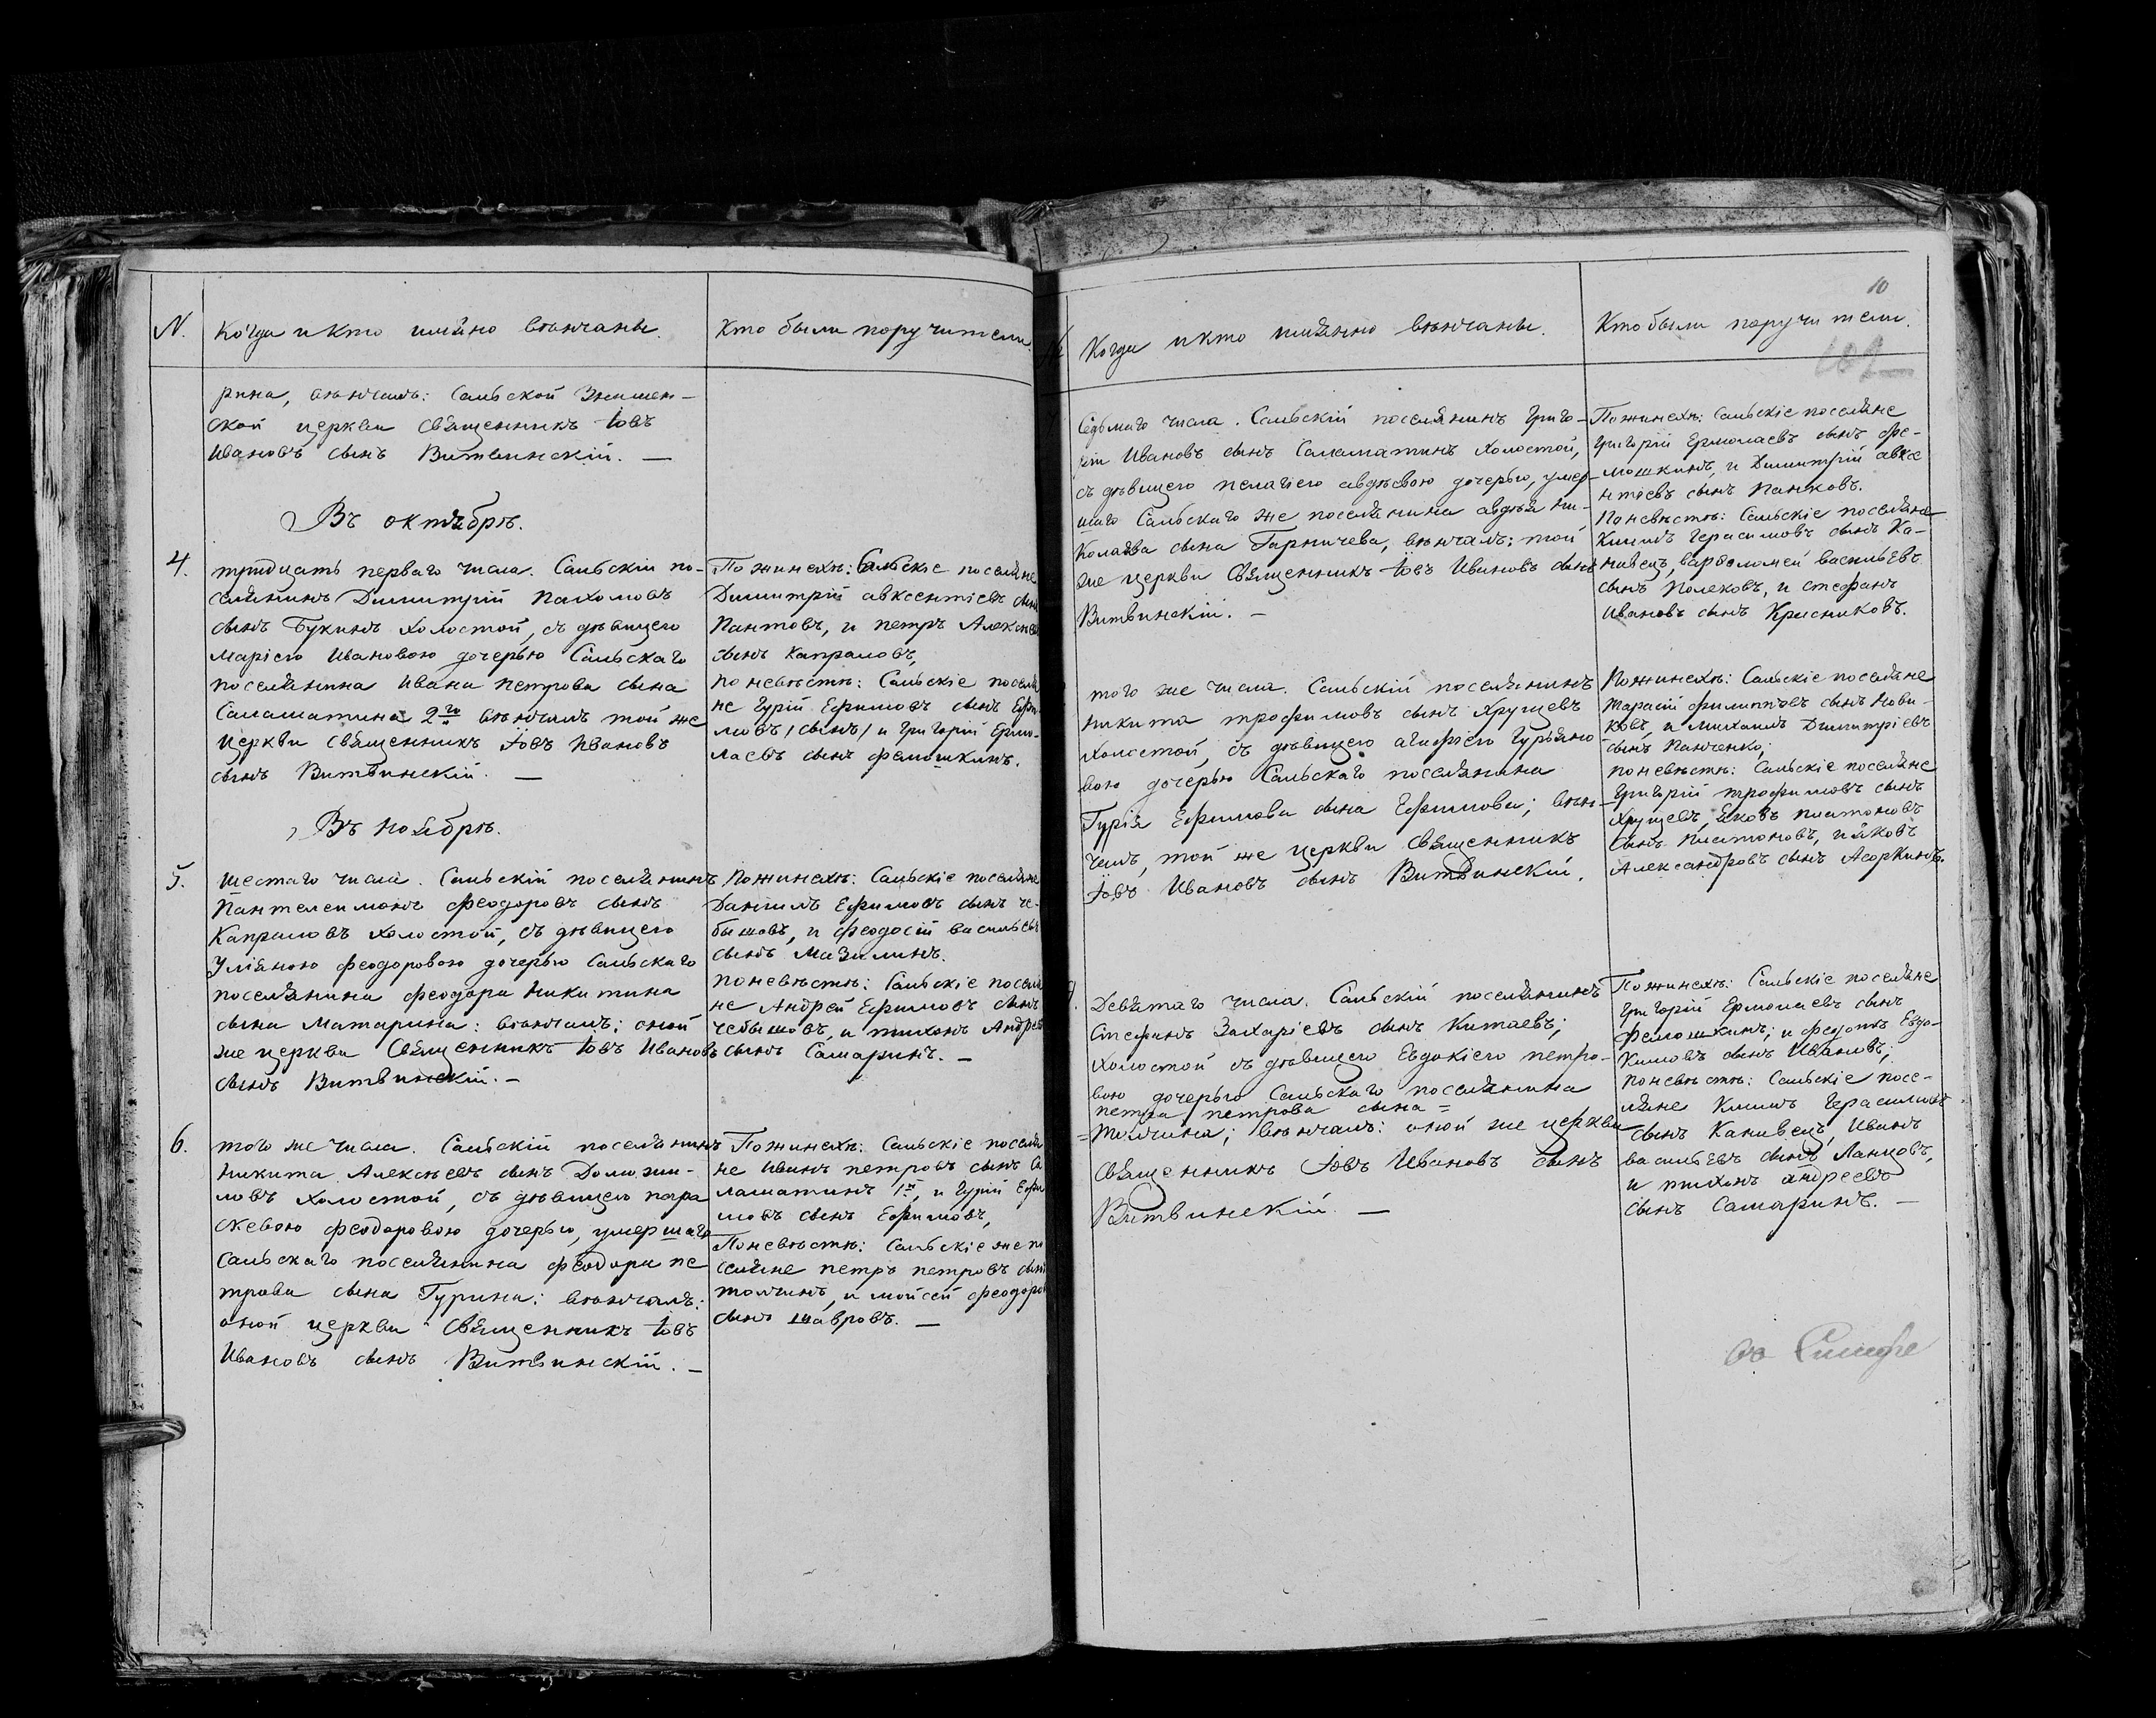 N. Когда и кто имяно вѣнчаны.
Кто были поручители.
рина, вѣнчалъ: Сальской Знамен-
ской церкви священникъ Іовъ
Ивановъ сынъ Витвинскій. —
Въ октябрѣ.
4.
тридцать перваго числа. Сальскій по-
селянинъ Димитрій Пахомовъ
сынъ Букинъ холостой, съ дѣвицею
Маріею Ивановою дочерью Сальскаго
поселянина Ивана Петрова сына
Саламатина 2го вѣнчалъ той же
церкви священникъ Іовъ Ивановъ
сынъ Витвинскій. —
По женихѣ: Сальскіе поселяне
Димитрій авксентіевъ сынъ
Пантовъ, и петръ Алексѣев
сынъ Капраловъ,
по невѣстѣ: Сальскіе поселя
не Гурій Ефимовъ сынъ Ефи-
мовъ /сынъ/ и Григорій Ермо-
лаевъ сынъ фемошкинъ.
Въ ноябрѣ.
5.
шестаго числа. Сальскій поселянинъ
Пантелеимонъ феодоровъ сынъ
Капраловъ холостой, съ дѣвицею
Уліяною феодоровою дочерью Сальскаго
поселянина феодора Никитина
сына Матарина: вѣнчалъ: оной
же церкви священникъ Іовъ Ивановъ
сынъ Витвинскій. —
По женихѣ: Сальскіе поселяне
Даніилъ Ефимовъ сынъ че-
бышовъ, и феодосій васильевъ
сынъ Мазилинъ.
по невѣстѣ: Сальскіе поселя
не Андрей Ефимовъ сынъ
чебышовъ, и тихонъ Андрѣев
сынъ Самаринъ. —
6.
того же числа. Сальскій поселянинъ
Никита Алексѣевъ сынъ Долюжи-
ловъ холостой, съ дѣвицею пара
скевою феодоровою дочерью, умершаго
Сальскаго поселянина феодора пе
трова сына Гурина: вѣнчалъ:
оной церкви священникъ Іовъ
Ивановъ сынъ Витвинскій. —
По женихѣ: Сальскіе поселя
не Иванъ петровъ сынъ Са
ламатинъ 1й, и Гурій Ефи
мовъ сынъ Ефимовъ,
По невѣстѣ: Сальскіе же по
селяне петръ петровъ сынъ
толчинъ, и мойсей феодоров
сынъ шавровъ. —
10
Когда и кто имянно вѣнчаны.
Кто были поручители.
Седьмаго числа. Сальскій поселянинъ Григо-
рій Ивановъ сынъ Саламатинъ холостой,
съ дѣвицею пелагіею авдѣевою дочерью, умер-
шаго Сальскаго же поселянина авдѣя ни-
колаева сына Гарничева, вѣнчалъ: той
же церкви священникъ Іовъ Ивановъ сынъ
Витвинскій. —
По женихѣ: Сальскіе поселяне
Григорій Ермолаевъ сынъ фе-
мошкинъ, и Димитрій авксе
нтіевъ сынъ Панковъ.
По невѣстѣ: Сальскіе поселяне
Климъ Герасимовъ сынъ Ка-
нивецъ, варфоломей васильевъ
сынъ Поляковъ, и стефанъ
Ивановъ сынъ Красниковъ.
того же числа. Сальскій поселянинъ
никита трофимовъ сынъ Хрущевъ
холостой, съ дѣвицею агафіею Гурьяно
вою дочерью Сальскаго поселянина
Гурія Ефимова сына Ефимова; вѣн-
чалъ, той же церкви священникъ
Іовъ Ивановъ сынъ Витвинскій.
По женихѣ: Сальскіе поселяне
тарасій филипповъ сынъ Нови-
ковъ, и михаилъ Димитріевъ
сынъ Панченко;
по невѣстѣ: Сальскіе поселяне
Григорій трофимовъ сынъ
Хрущевъ, Яковъ платоновъ
сынъ платоновъ, и яковъ
Александровъ сынъ Асоркинъ.
9.
Девятаго числа. Сальскій поселянинъ
Стефанъ Захаріевъ сынъ Китаевъ;
холостой съ дѣвицею Евдокіею петро-
вою дочерью Сальскаго поселянина
петра петрова сына =
= Толчина; вѣнчалъ: оной же церкви
священникъ Іовъ Ивановъ сынъ
Витвинскій. —
По женихѣ: Сальскіе поселяне
Григорій Ермолаевъ сынъ
фемошкинъ; и федотъ Евдо-
кимовъ сынъ Ивановъ;
по невѣстѣ: Сальскіе посе-
ляне Климъ Герасимовъ
сынъ Канивецъ, Иванъ
васильевъ сынъ Ланцовъ,
и тихонъ андреевъ
сынъ Самаринъ. —